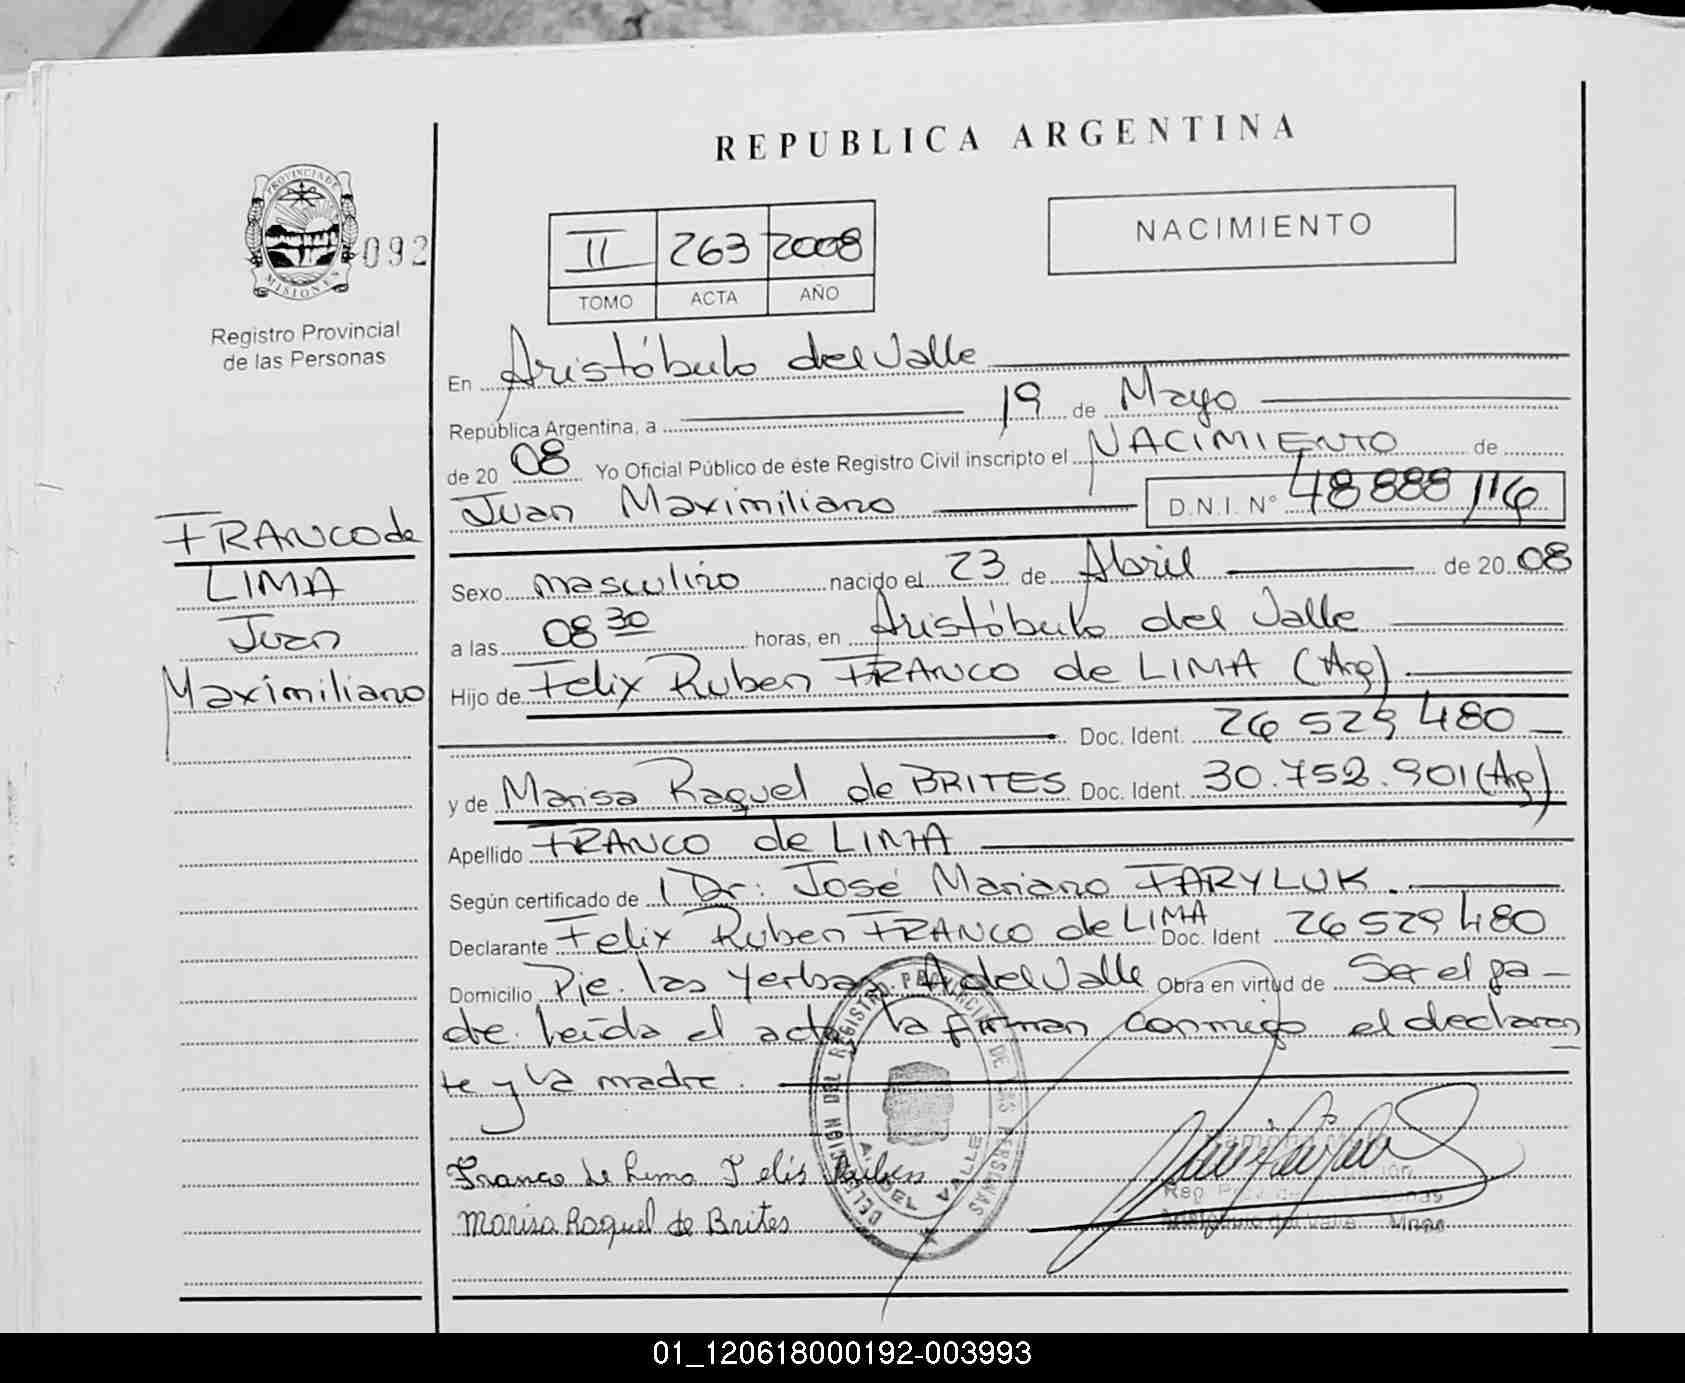 REPUBLICA ARGENTINA
PROVINCIA DE MISIONES
092
Registro Provincial
de las Personas
II 263 2008
TOMO ACTA AÑO
NACIMIENTO
FRANCO de
LIMA
Juan
Maximiliano
En Aristóbulo del Valle
República Argentina, a 19 de Mayo
de 20 08 Yo Oficial Público de éste Registro Civil inscripto el NACIMIENTO de
Juan Maximiliano D.N.I. Nº 48 888 116
Sexo masculino nacido el 23 de Abril de 20 08
a las 08 30 horas, en Aristóbulo del Valle
Hijo de Felix Ruben FRANCO de LIMA (Arg)
Doc. Ident. 26 529 480
y de Marisa Raquel de BRITES Doc. Ident. 30.752.901 (Arg)
Apellido FRANCO de LIMA
Según certificado de Dr: José Mariano FARYLUK.
Declarante Felix Ruben FRANCO de LIMA Doc. Ident 26 529 480
Domicilio Pje. las Yerbas A del Valle Obra en virtud de Ser el pa-
dre. leída el acta la firman conmigo el declaran
te y la madre.
Franco de Lima Felis Ruben
Marisa Raquel de Brites
DELEGACION DEL REGISTRO PROVINCIAL DE LAS PERSONAS
A. DEL VALLE
Aristóbulo del Valle Mnes
01_120618000192-003993